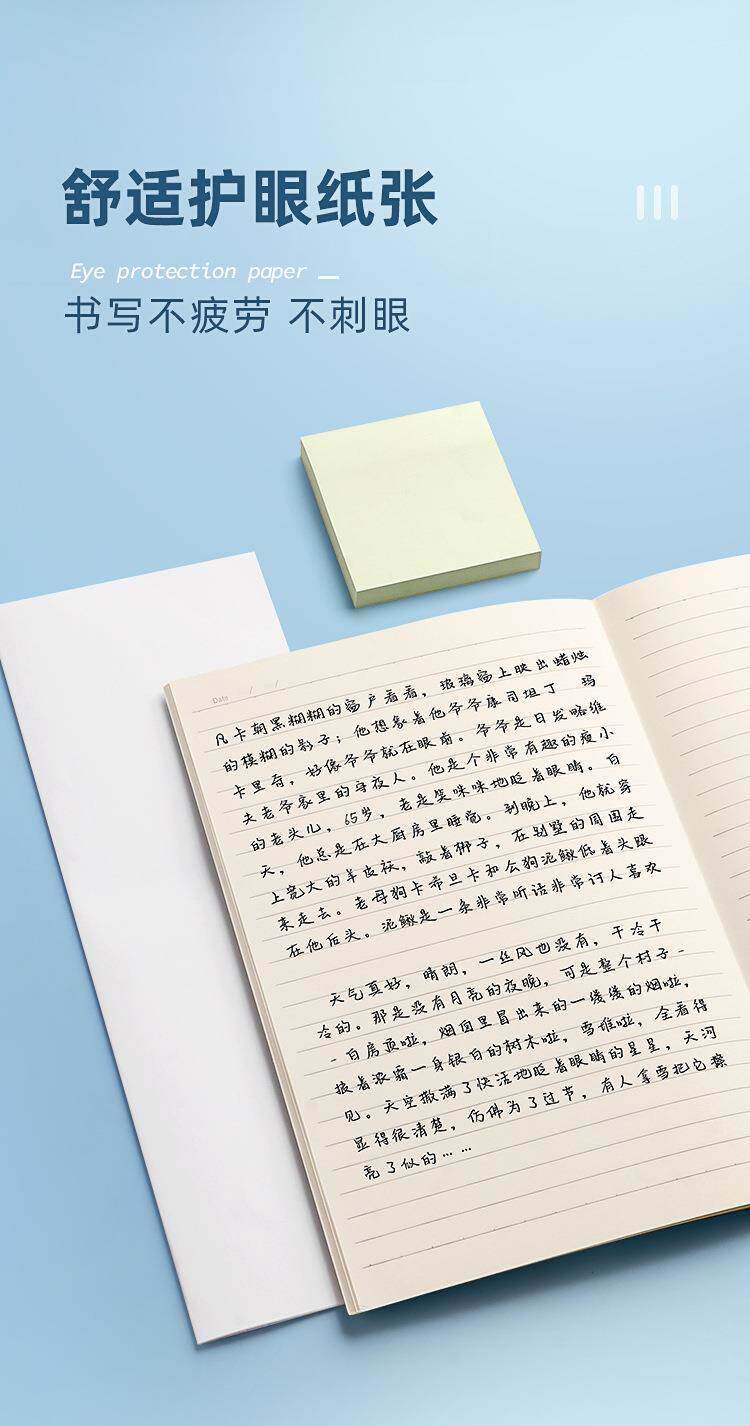 舒适护眼纸张
Eye protection paper
书写不疲劳 不刺眼
Date / /
凡卡朝黑糊糊的窗户看看，玻璃窗上映出蜡烛
的模糊的影子；他想象着他爷爷康司坦丁 玛
卡里奇，好像爷爷就在眼前。爷爷是日发略维
夫老爷家里的守夜人。他是个非常有趣的瘦小
的老头儿，65岁，老是笑咪咪地眨着眼睛。白
天，他总是在大厨房里睡觉。到晚上，他就穿
上宽大的羊皮袄，敲着梆子，在别墅的周围走
来走去。老母狗卡希旦卡和公狗泥鳅低着头跟
在他后头。泥鳅是一条非常听话非常讨人喜欢
天气真好，晴朗，一丝风也没有，干冷干
冷的。那是没有月亮的夜晚，可是整个村子-
-白房顶啦，烟囱里冒出来的一缕缕的烟啦，
披着浓霜一身银白的树木啦，雪堆啦，全看得
见。天空撒满了快活地眨着眼睛的星星，天河
显得很清楚，仿佛为了过节，有人拿雪把它擦
亮了似的……